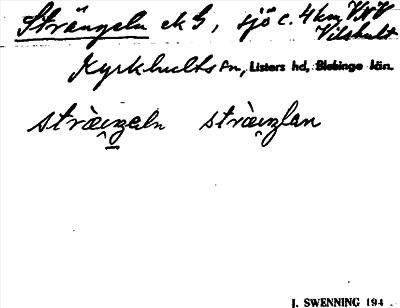 Strängeln ek G, sjö c. 4 km VNV
Vilshult
Kyrkhults sn, Listers hd, Blekinge län.
stràinzeln stràinzlan
J. SWENNING 194 .